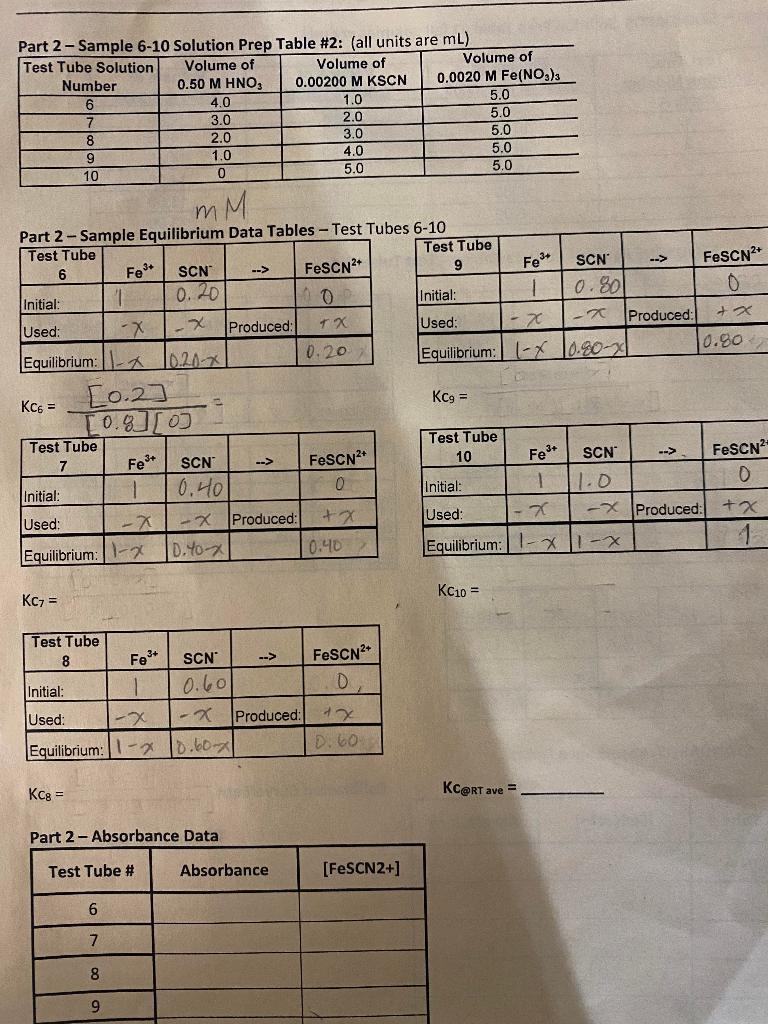 Part 2 – Sample 6-10 Solution Prep Table #2: (all units are mL)
Test Tube Solution Number | Volume of 0.50 M HNO₃ | Volume of 0.00200 M KSCN | Volume of 0.0020 M Fe(NO₃)₃
6 4.0 1.0 5.0
7 3.0 2.0 5.0
8 2.0 3.0 5.0
9 1.0 4.0 5.0
10 0 5.0 5.0
mM
Part 2 – Sample Equilibrium Data Tables – Test Tubes 6-10
Test Tube 6 Fe³⁺ SCN⁻ --> FeSCN²⁺
Initial: 1 0.20 0
Used: -x -x Produced: +x
Equilibrium: 1-x 0.20-x 0.20
Kc₆ = [0.2] / [0.8][0] =
Test Tube 9 Fe³⁺ SCN⁻ --> FeSCN²⁺
Initial: 1 0.80 0
Used: -x -x Produced: +x
Equilibrium: 1-x 0.80-x 0.80
Kc₉ =
Test Tube 7 Fe³⁺ SCN⁻ --> FeSCN²⁺
Initial: 1 0.40 0
Used: -x -x Produced: +x
Equilibrium: 1-x 0.40-x 0.40
Kc₇ =
Test Tube 10 Fe³⁺ SCN⁻ --> FeSCN²⁺
Initial: 1 1.0 0
Used: -x -x Produced: +x
Equilibrium: 1-x 1-x 1
Kc₁₀ =
Test Tube 8 Fe³⁺ SCN⁻ --> FeSCN²⁺
Initial: 1 0.60 0
Used: -x -x Produced: +x
Equilibrium: 1-x 0.60-x 0.60
Kc₈ =
Kc@RT ave = ________
Part 2 – Absorbance Data
Test Tube # Absorbance [FeSCN2+]
6
7
8
9